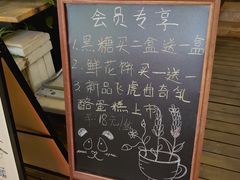 会员专享
1.黑糖买二盒送一盒
2.鲜花饼买一送一
3.新品飞虎曲奇乳
酪蛋糕上市
18元/